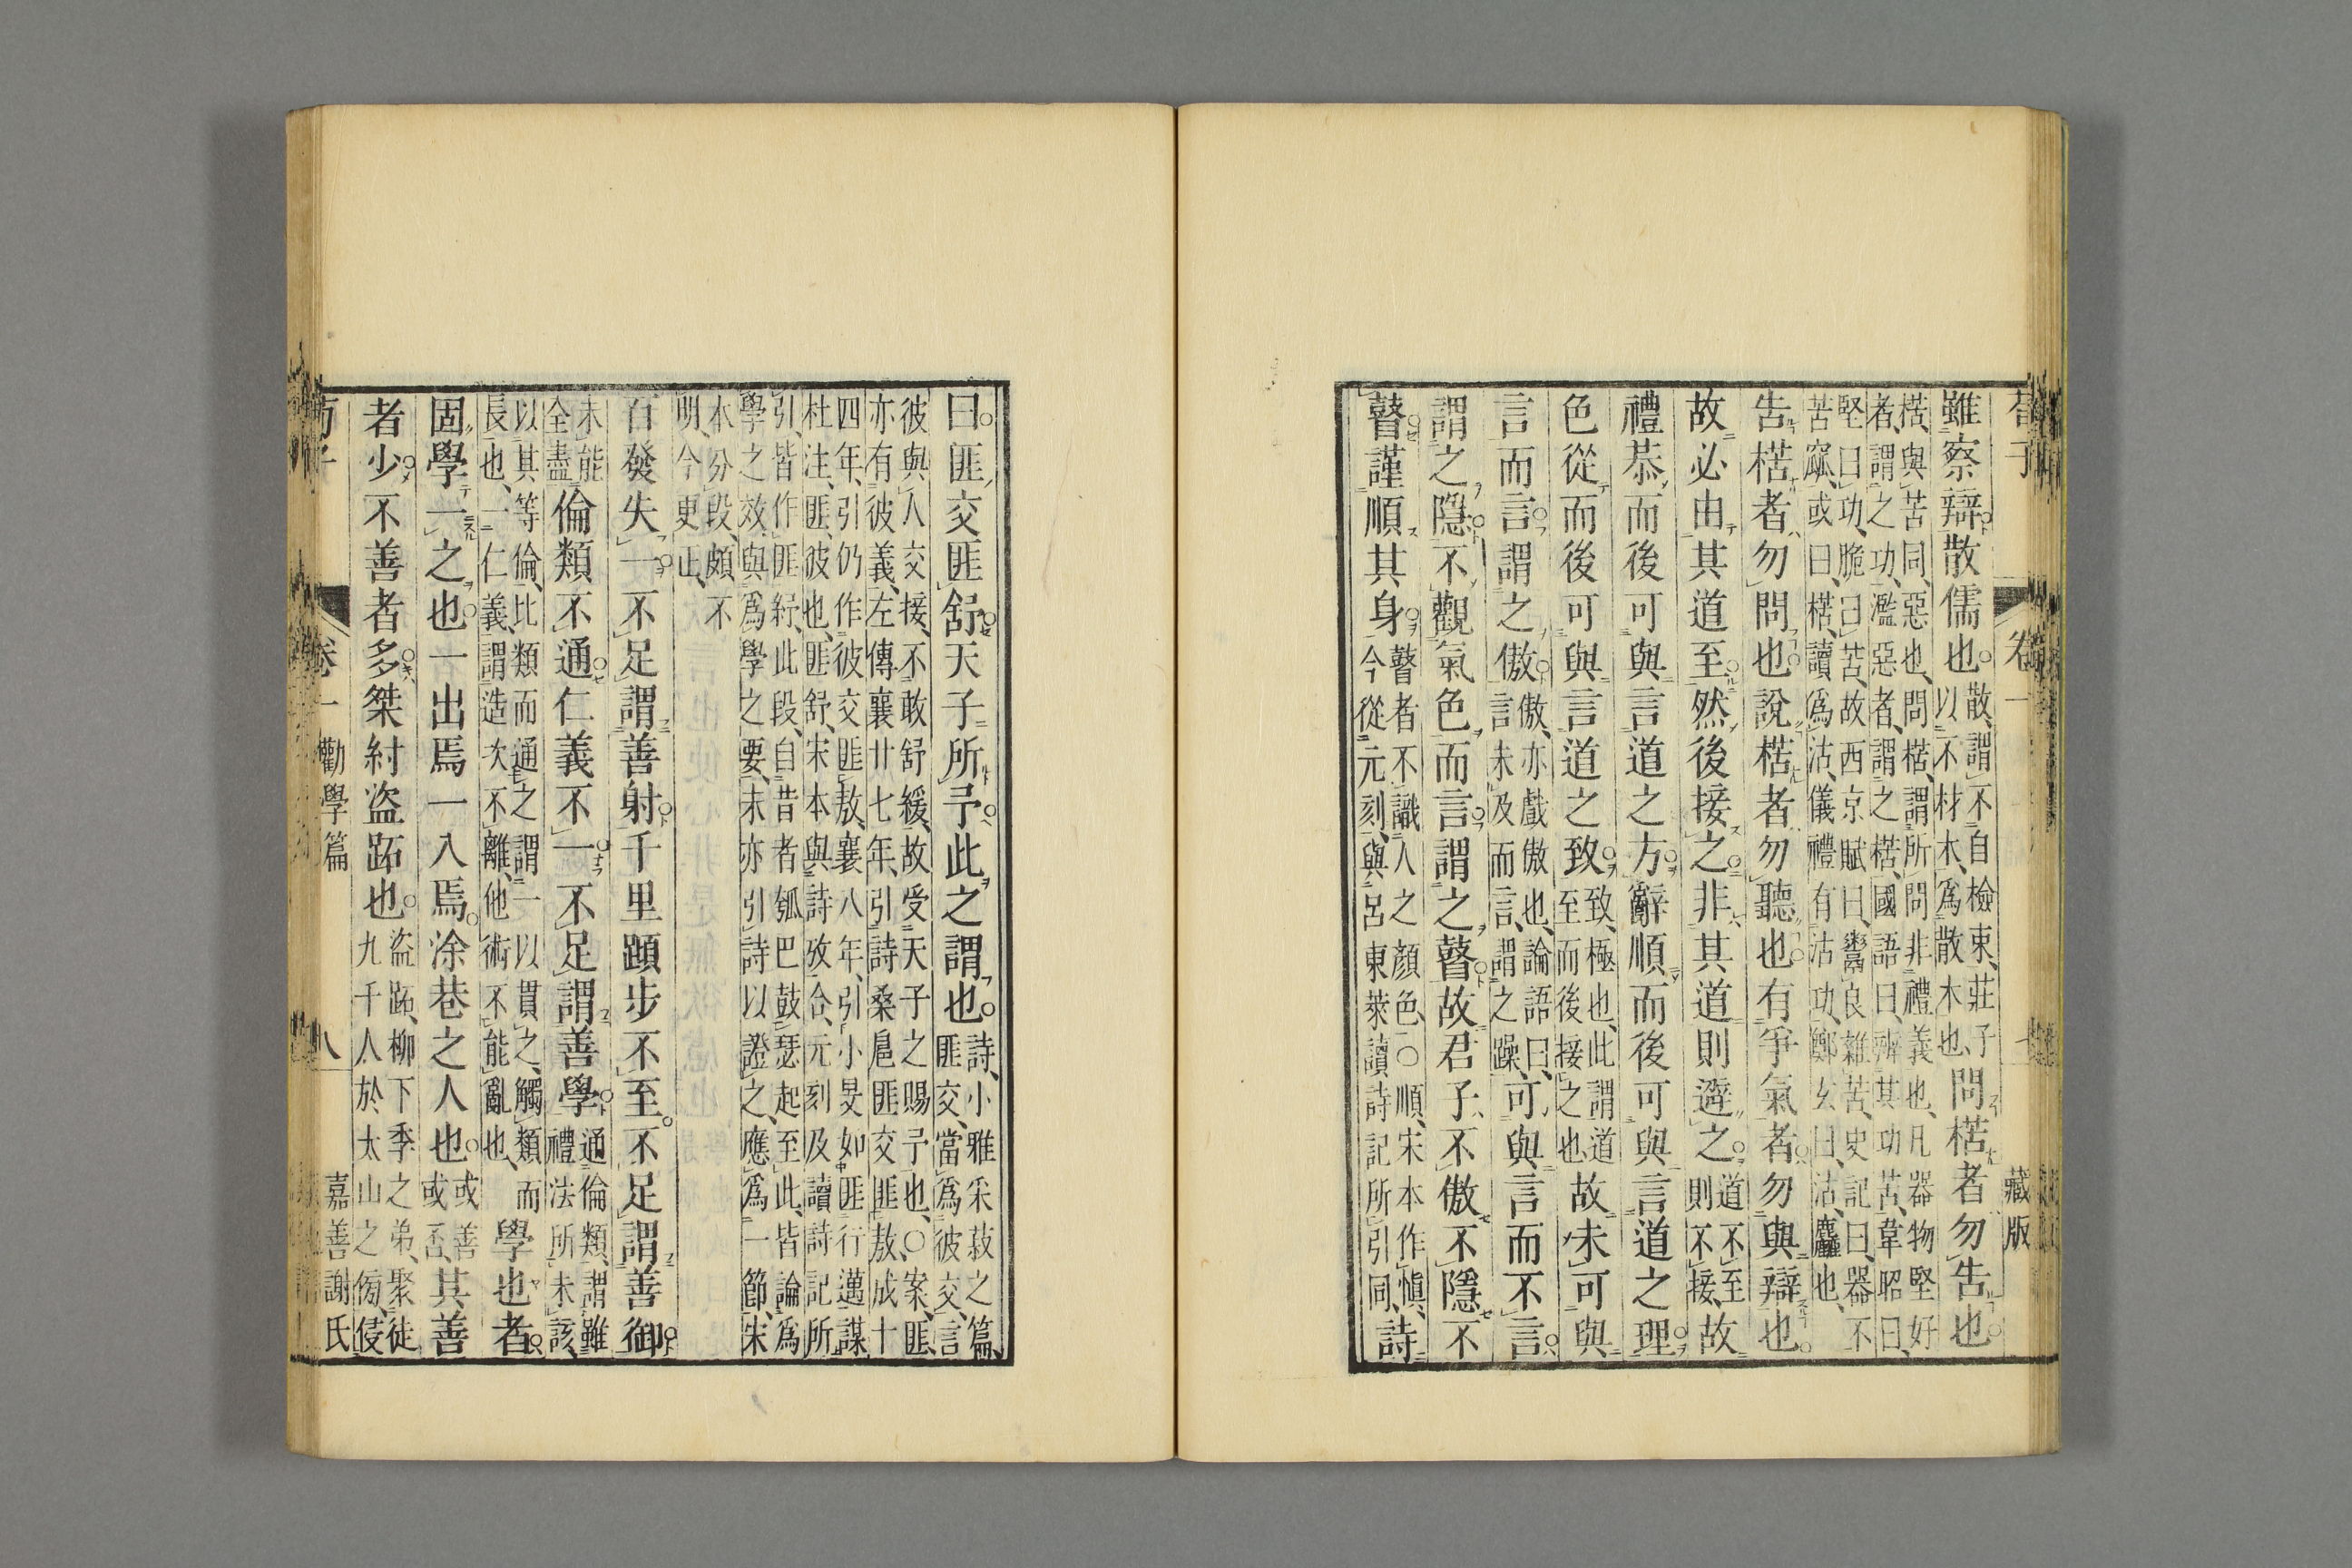 荀子
卷一
藏版
雖察辯散儒也散謂不自檢束莊子以不材木爲散木也問楛者勿告也
楛與苦同惡也問楛謂所問非禮義也凡器物堅好
者謂之功濫惡者謂之楛國語曰辨其功苦韋昭曰
堅曰功脆曰苦故西京賦曰鬻良雜苦史記曰器不
苦窳或曰楛讀爲沽儀禮有沽功鄭玄曰沽麤也
告楛者勿問也說楛者勿聽也有爭氣者勿與辯也
故必由其道至然後接之非其道則避之道不至則不接故
禮恭而後可與言道之方辭順而後可與言道之理
色從而後可與言道之致致極也此謂道至而後接之也故未可與
言而言謂之傲傲亦戲傲也論語曰言未及而言謂之躁可與言而不言
謂之隱不觀氣色而言謂之瞽故君子不傲不隱不
瞽謹順其身瞽者不識人之顏色○順宋本作愼今從元刻與呂東萊讀詩記所引同詩
曰匪交匪舒天子所予此之謂也詩小雅采菽之篇匪交當爲彼交言
彼與人交接不敢舒緩故受天子之賜予也○案匪
亦有彼義左傳襄廿七年引詩桑扈匪交匪敖成十
四年引仍作彼交匪敖襄八年引小旻如匪行邁謀
杜注匪彼也匪舒宋本與詩攷合元刻及讀詩記所
引皆作匪紓此段自昔者瓠巴鼓瑟起至此皆論爲
學之效與爲學之要末亦引詩以證之應爲一節宋
本分段頗不
明今更正
百發失一不足謂善射千里蹞步不至不足謂善御
未能全盡倫類不通仁義不一不足謂善學通倫類謂雖禮法所未該
以其等倫比類而通之謂一以貫之觸類而
長也一仁義謂造次不離他術不能亂也學也者
固學一之也一出焉一入焉涂巷之人也或善或否其善
者少不善者多桀紂盜跖也盜跖柳下季之弟聚徒九千人於太山之傍侵
荀子
卷一
勸學篇
八
嘉善謝氏